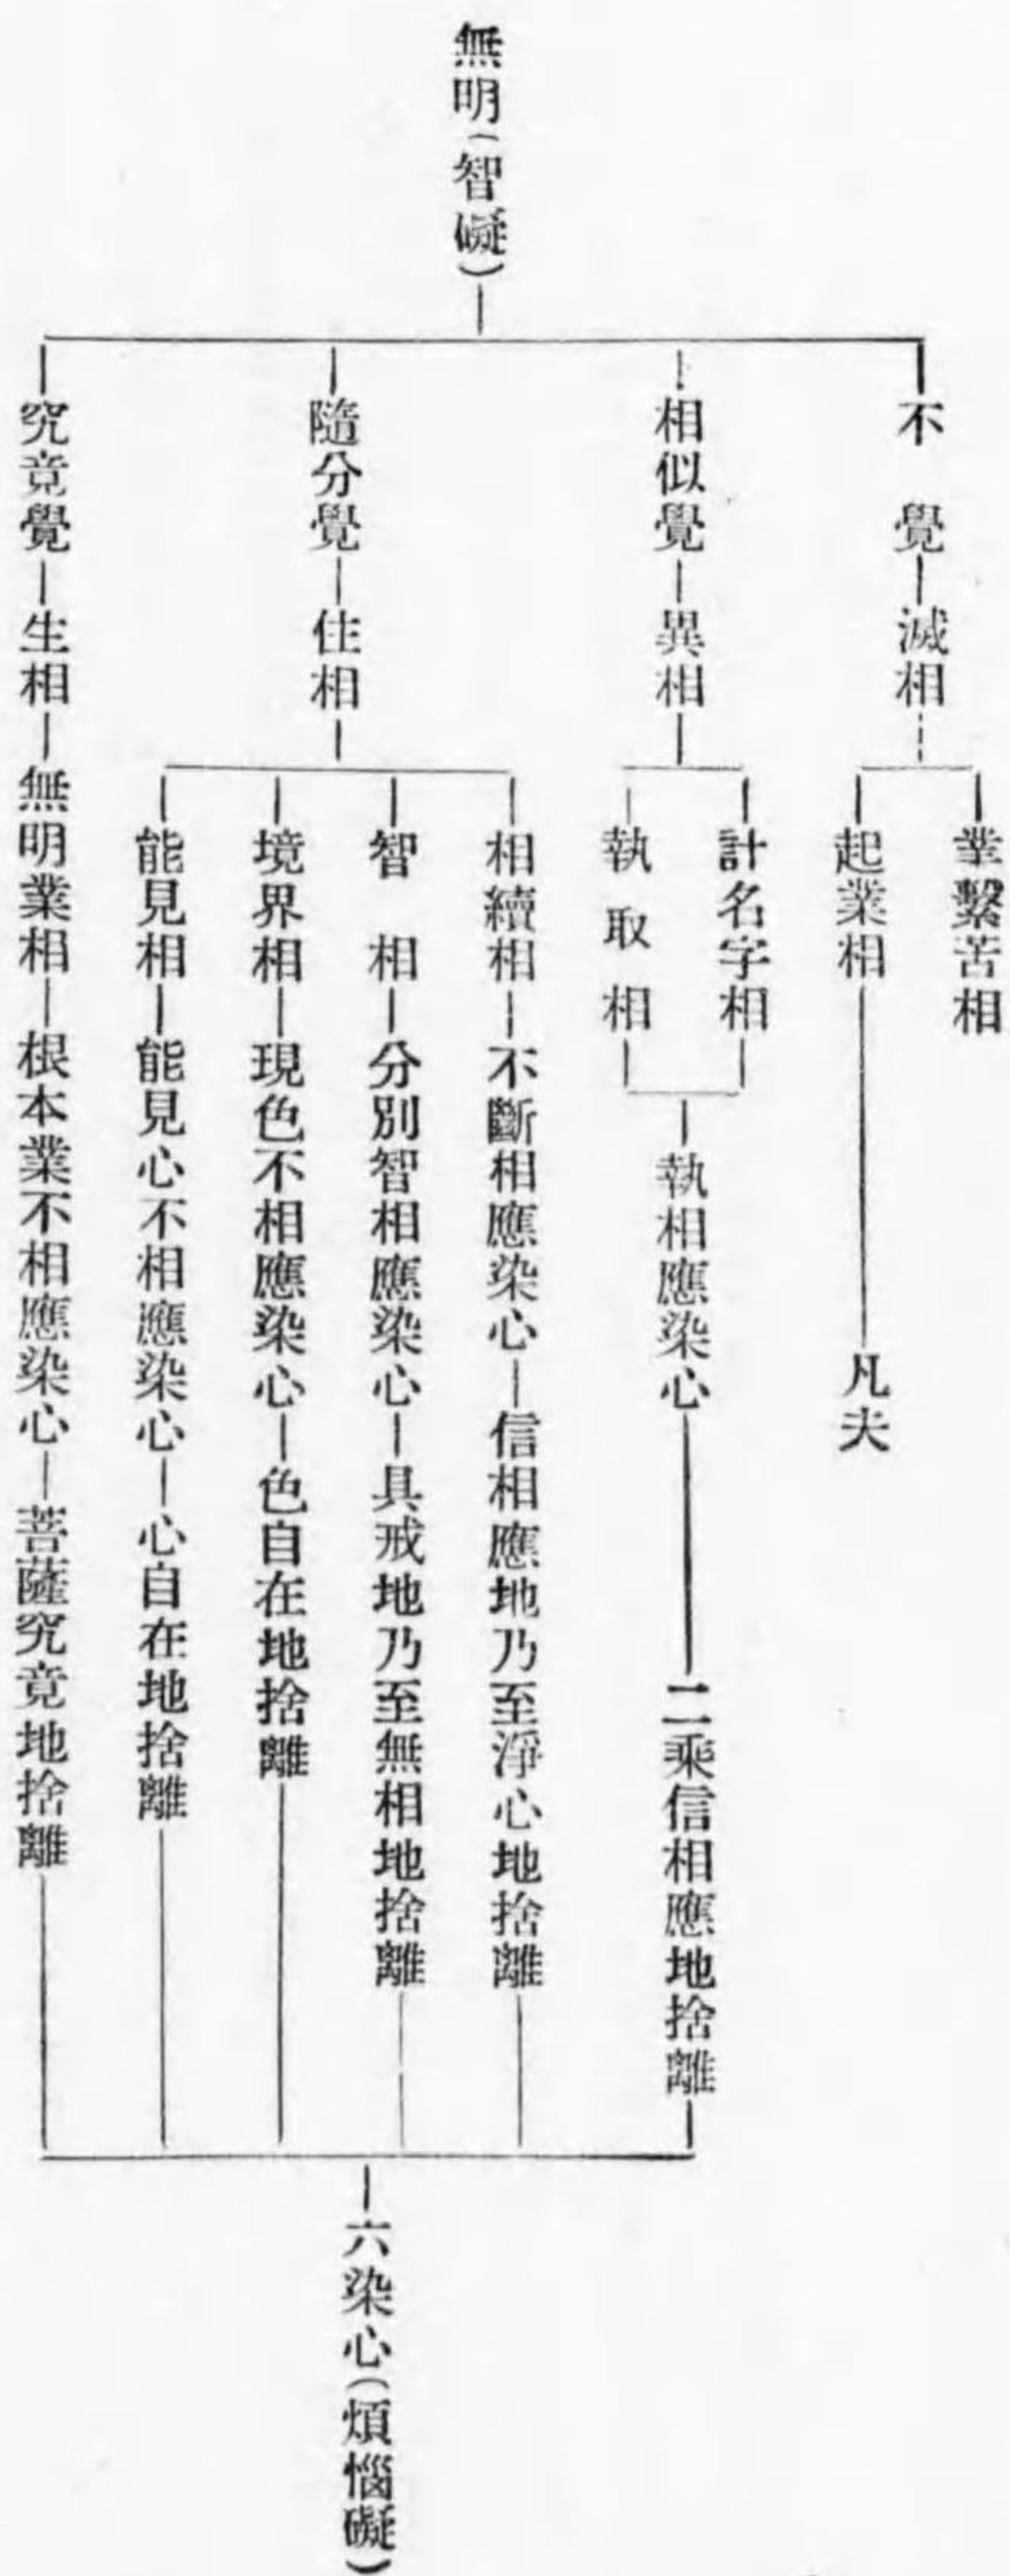 無明(智礙)
不覺
滅相
業繫苦相
起業相
凡夫
相似覺
異相
計名字相
執取相
執相應染心
二乘信相應地捨離
隨分覺
住相
相續相
不斷相應染心
信相應地乃至淨心地捨離
智相
分別智相應染心
具戒地乃至無相地捨離
境界相
現色不相應染心
色自在地捨離
能見相
能見心不相應染心
心自在地捨離
究竟覺
生相
無明業相
根本業不相應染心
菩薩究竟地捨離
六染心(煩惱礙)